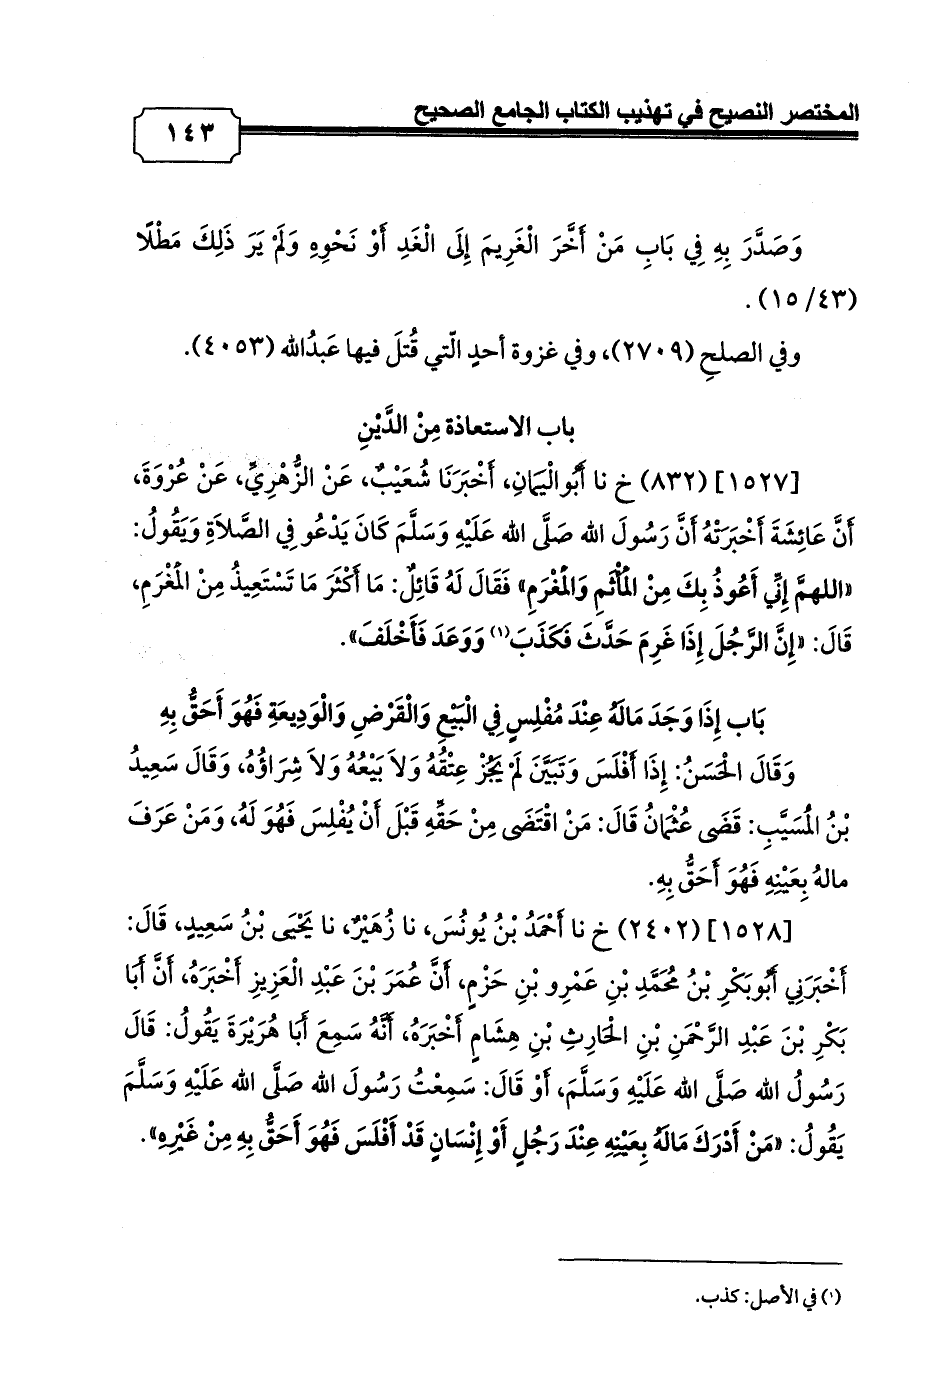 المختصر النصيح في تهذيب الكتاب الجامع الصحيح
١٤٣
وَصَدَّرَ بِهِ فِي بَابِ مَنْ أَخَّرَ الْغَرِيمَ إِلَى الْغَدِ أَوْ نَحْوِهِ وَلَمْ يَرَ ذَلِكَ مَطْلًا
(٤٣/ ١٥).
وفي الصلحِ (٢٧٠٩)، وفي غزوة أحدٍ الّتي قُتلَ فيها عَبدُالله (٤٠٥٣).
باب الاستعاذة مِنْ الدَّيْنِ
[١٥٢٧] (٨٣٢) خ نا أَبُوالْيَمانِ، أَخْبَرَنَا شُعَيْبٌ، عَنْ الزُّهْرِيِّ، عَنْ عُرْوَةَ،
أَنَّ عَائِشَةَ أَخْبَرَتْهُ أَنَّ رَسُولَ الله صَلَّى الله عَلَيْهِ وَسَلَّمَ كَانَ يَدْعُو فِي الصَّلاَةِ وَيَقُولُ:
«اللهمَّ إِنِّي أَعُوذُ بِكَ مِنْ الْمَأْثَمِ وَالْمَغْرَمِ» فَقَالَ لَهُ قَائِلٌ: مَا أَكْثَرَ مَا تَسْتَعِيذُ مِنْ الْمَغْرَمِ،
قَالَ: «إِنَّ الرَّجُلَ إِذَا غَرِمَ حَدَّثَ فَكَذَبَ(١) وَوَعَدَ فَأَخْلَفَ».
بَاب إِذَا وَجَدَ مَالَهُ عِنْدَ مُفْلِسٍ فِي الْبَيْعِ وَالْقَرْضِ وَالْوَدِيعَةِ فَهُوَ أَحَقُّ بِهِ
وَقَالَ الْحَسَنُ: إِذَا أَفْلَسَ وَتَبَيَّنَ لَمْ يَجُزْ عِتْقُهُ وَلاَ بَيْعُهُ وَلاَ شِرَاؤُهُ، وَقَالَ سَعِيدُ
بْنُ الْمُسَيَّبِ: قَضَى عُثْمَانُ قَالَ: مَنْ اقْتَضَى مِنْ حَقِّهِ قَبْلَ أَنْ يُفْلِسَ فَهُوَ لَهُ، وَمَنْ عَرَفَ
مالهُ بِعَيْنِهِ فَهُوَ أَحَقُّ بِهِ.
[١٥٢٨] (٢٤٠٢) خ نا أَحْمَدُ بْنُ يُونُسَ، نا زُهَيْرٌ، نا يَحْيَى بْنُ سَعِيدٍ، قَالَ:
أَخْبَرَنِي أَبُوبَكْرِ بْنُ مُحَمَّدِ بْنِ عَمْرِو بْنِ حَزْمٍ، أَنَّ عُمَرَ بْنَ عَبْدِ الْعَزِيزِ أَخْبَرَهُ، أَنَّ أَبَا
بَكْرِ بْنَ عَبْدِ الرَّحْمَنِ بْنِ الْحَارِثِ بْنِ هِشَامٍ أَخْبَرَهُ، أَنَّهُ سَمِعَ أَبَا هُرَيْرَةَ يَقُولُ: قَالَ
رَسُولُ الله صَلَّى الله عَلَيْهِ وَسَلَّمَ، أَوْ قَالَ: سَمِعْتُ رَسُولَ الله صَلَّى الله عَلَيْهِ وَسَلَّمَ
يَقُولُ: «مَنْ أَدْرَكَ مَالَهُ بِعَيْنِهِ عِنْدَ رَجُلٍ أَوْ إِنْسَانٍ قَدْ أَفْلَسَ فَهُوَ أَحَقُّ بِهِ مِنْ غَيْرِهِ».
(١) في الأصل: كذب.